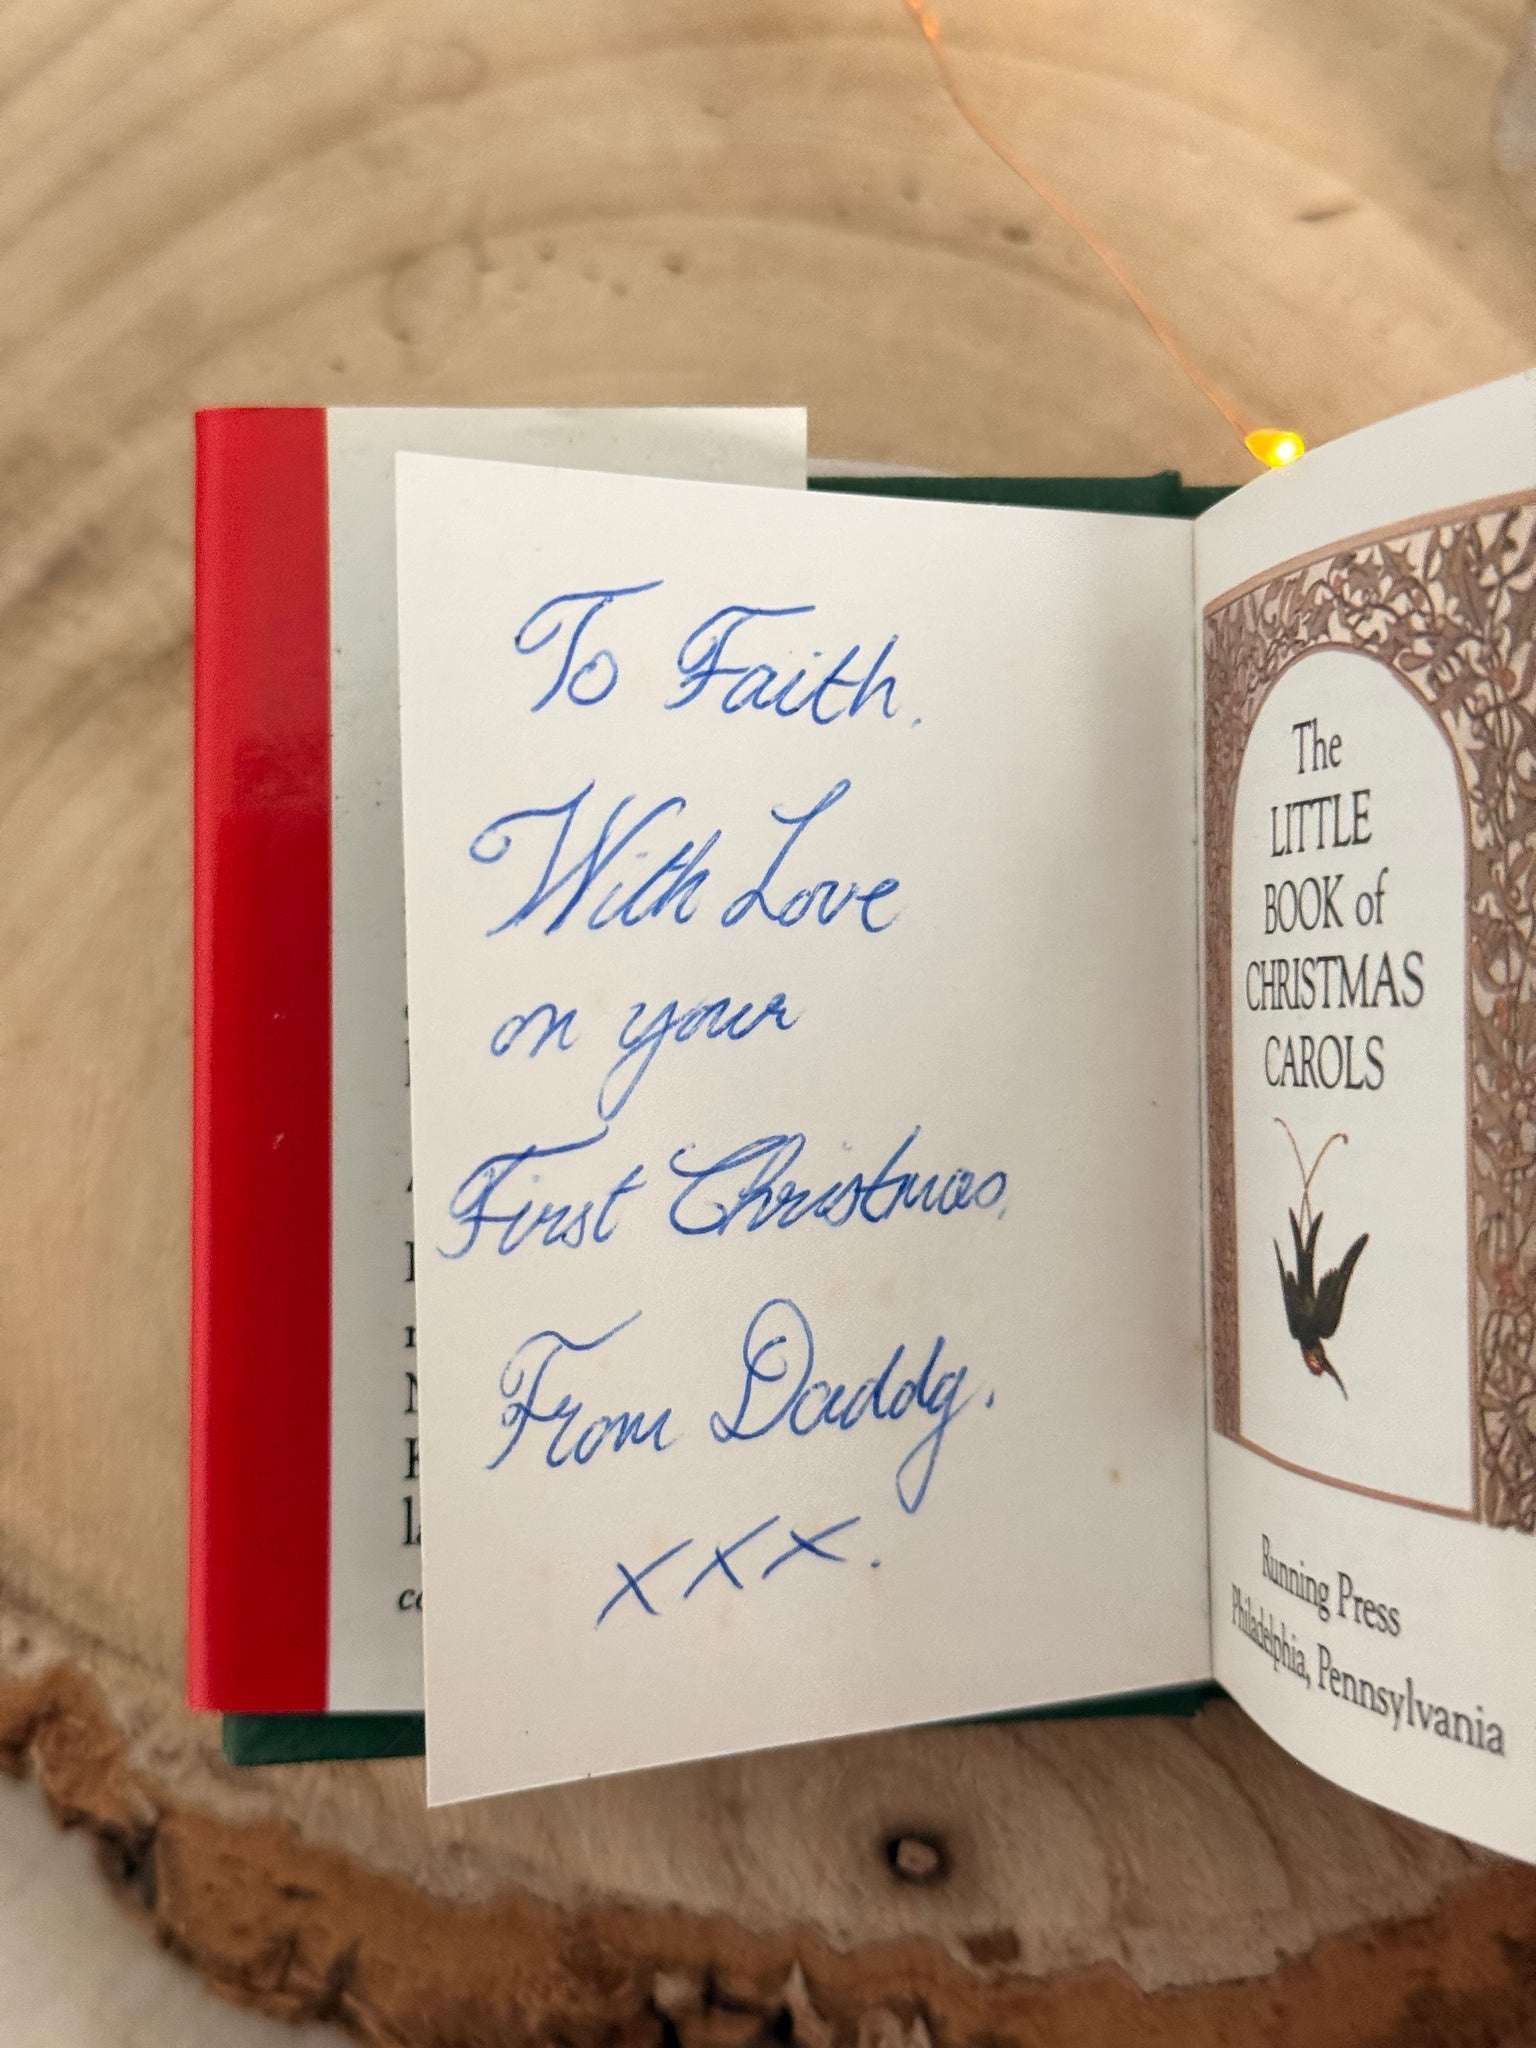 To Faith.
With Love
on your
First Christmas,
From Daddy.
xxx.
The
LITTLE
BOOK of
CHRISTMAS
CAROLS
Running Press
Philadelphia, Pennsylvania